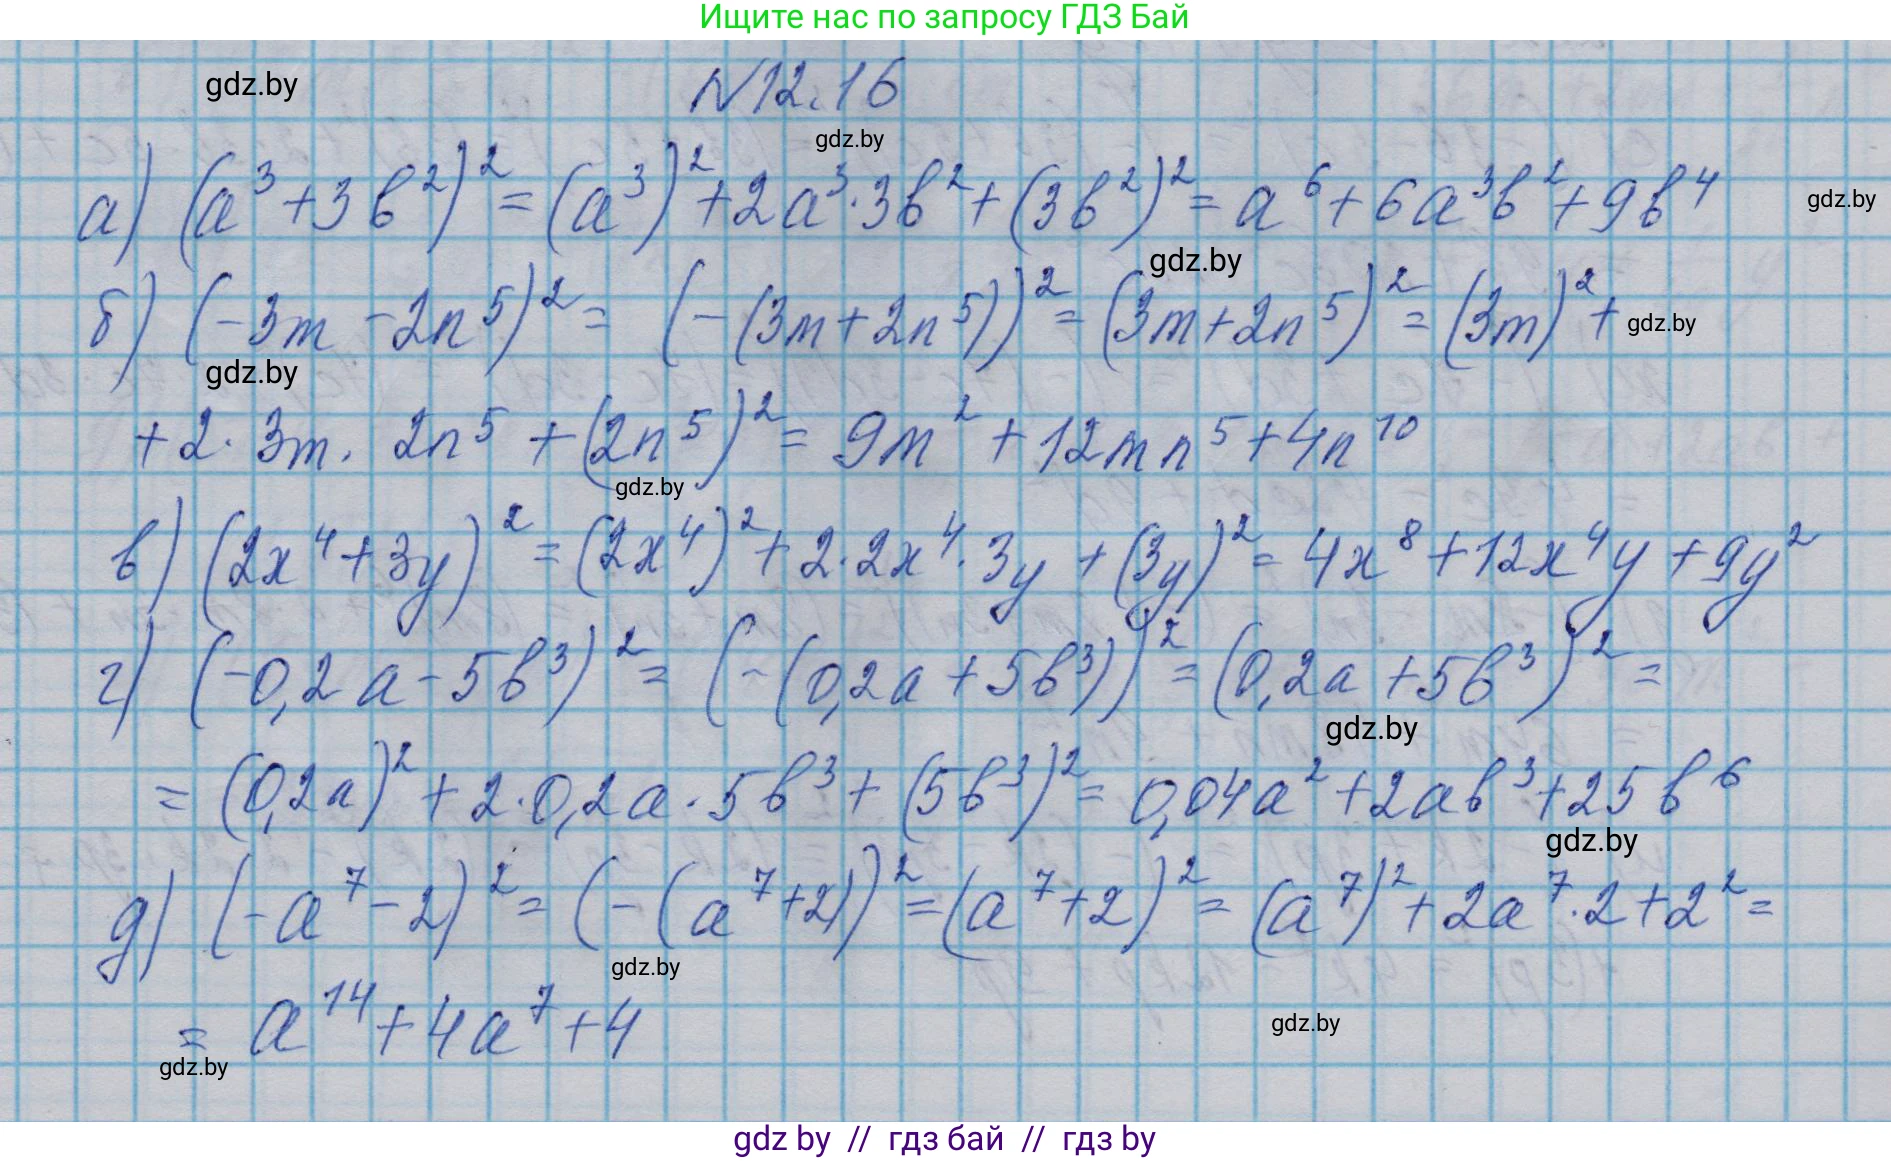 Ищите нас по запросу ГДЗ Бай
gdz.by
N12.16
gdz.by
а) (a³+3b²)²=(a³)²+2a³·3b²+(3b²)²=a⁶+6a³b²+9b⁴
gdz.by
gdz.by
б) (-3m-2n⁵)²=(-(3m+2n⁵))²=(3m+2n⁵)²=(3m)²+
gdz.by
gdz.by
+2·3m·2n⁵+(2n⁵)²=9m²+12mn⁵+4n¹⁰
gdz.by
в) (2x⁴+3y)²=(2x⁴)²+2·2x⁴·3y+(3y)²=4x⁸+12x⁴y+9y²
г) (-0,2a-5b³)²=(-(0,2a+5b³))²=(0,2a+5b³)²=
gdz.by
=(0,2a)²+2·0,2a·5b³+(5b³)²=0,04a²+2ab³+25b⁶
gdz.by
д) (-a⁷-2)²=(-(a⁷+2))²=(a⁷+2)²=(a⁷)²+2a⁷·2+2²=
gdz.by
=a¹⁴+4a⁷+4
gdz.by
gdz.by
gdz by // гдз бай // гдз by